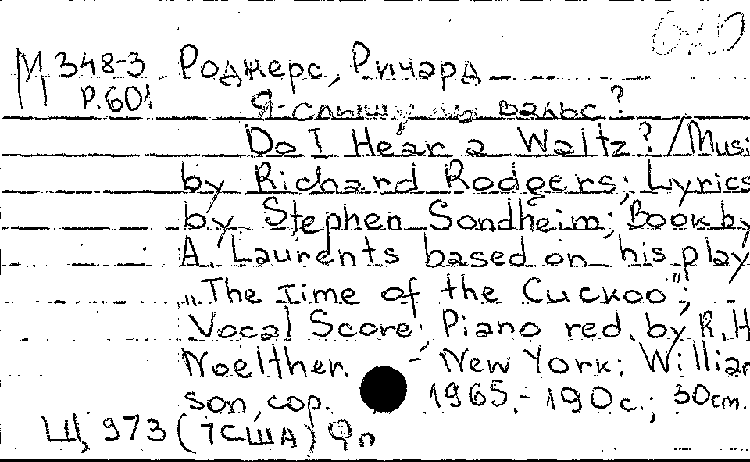 М 348-3 Роджерс, Ричард
Р.601
Я слышу ли вальс?
Do I Hear a Waltz? / Musi
by Richard Rodgers; Lyrics
by Stephen Sondheim; Book by
A. Laurents based on his play
„The Time of the Cuckoo";
Vocal Score; Piano red. by R.H
Noelther. - New York: William
son, cop. 1965.- 190 с.; 30 cm.
Щ 973 (7США) Фп